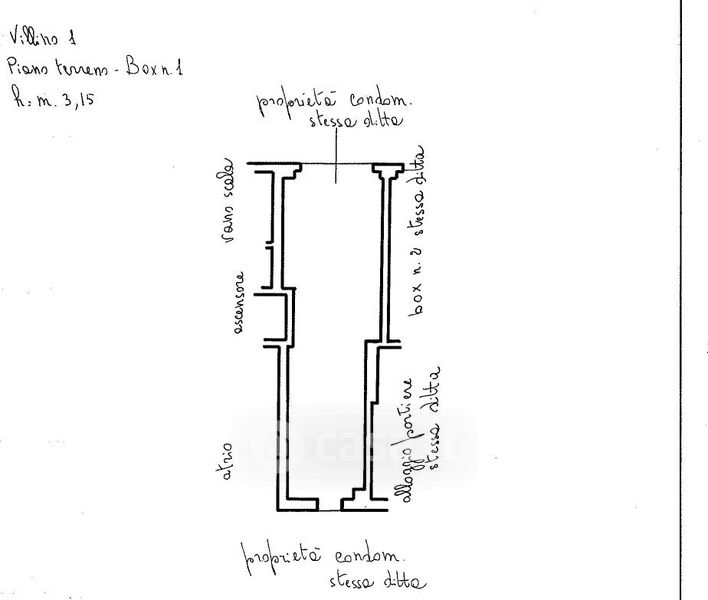 Villino 1
Piano terreno - Box n. 1
h. m. 3,15
proprietà condom.
stessa ditta
vano scala
ascensore
atrio
box n. 2 stessa ditta
alloggio portiere
stessa ditta
casa.it
proprietà condom.
stessa ditta